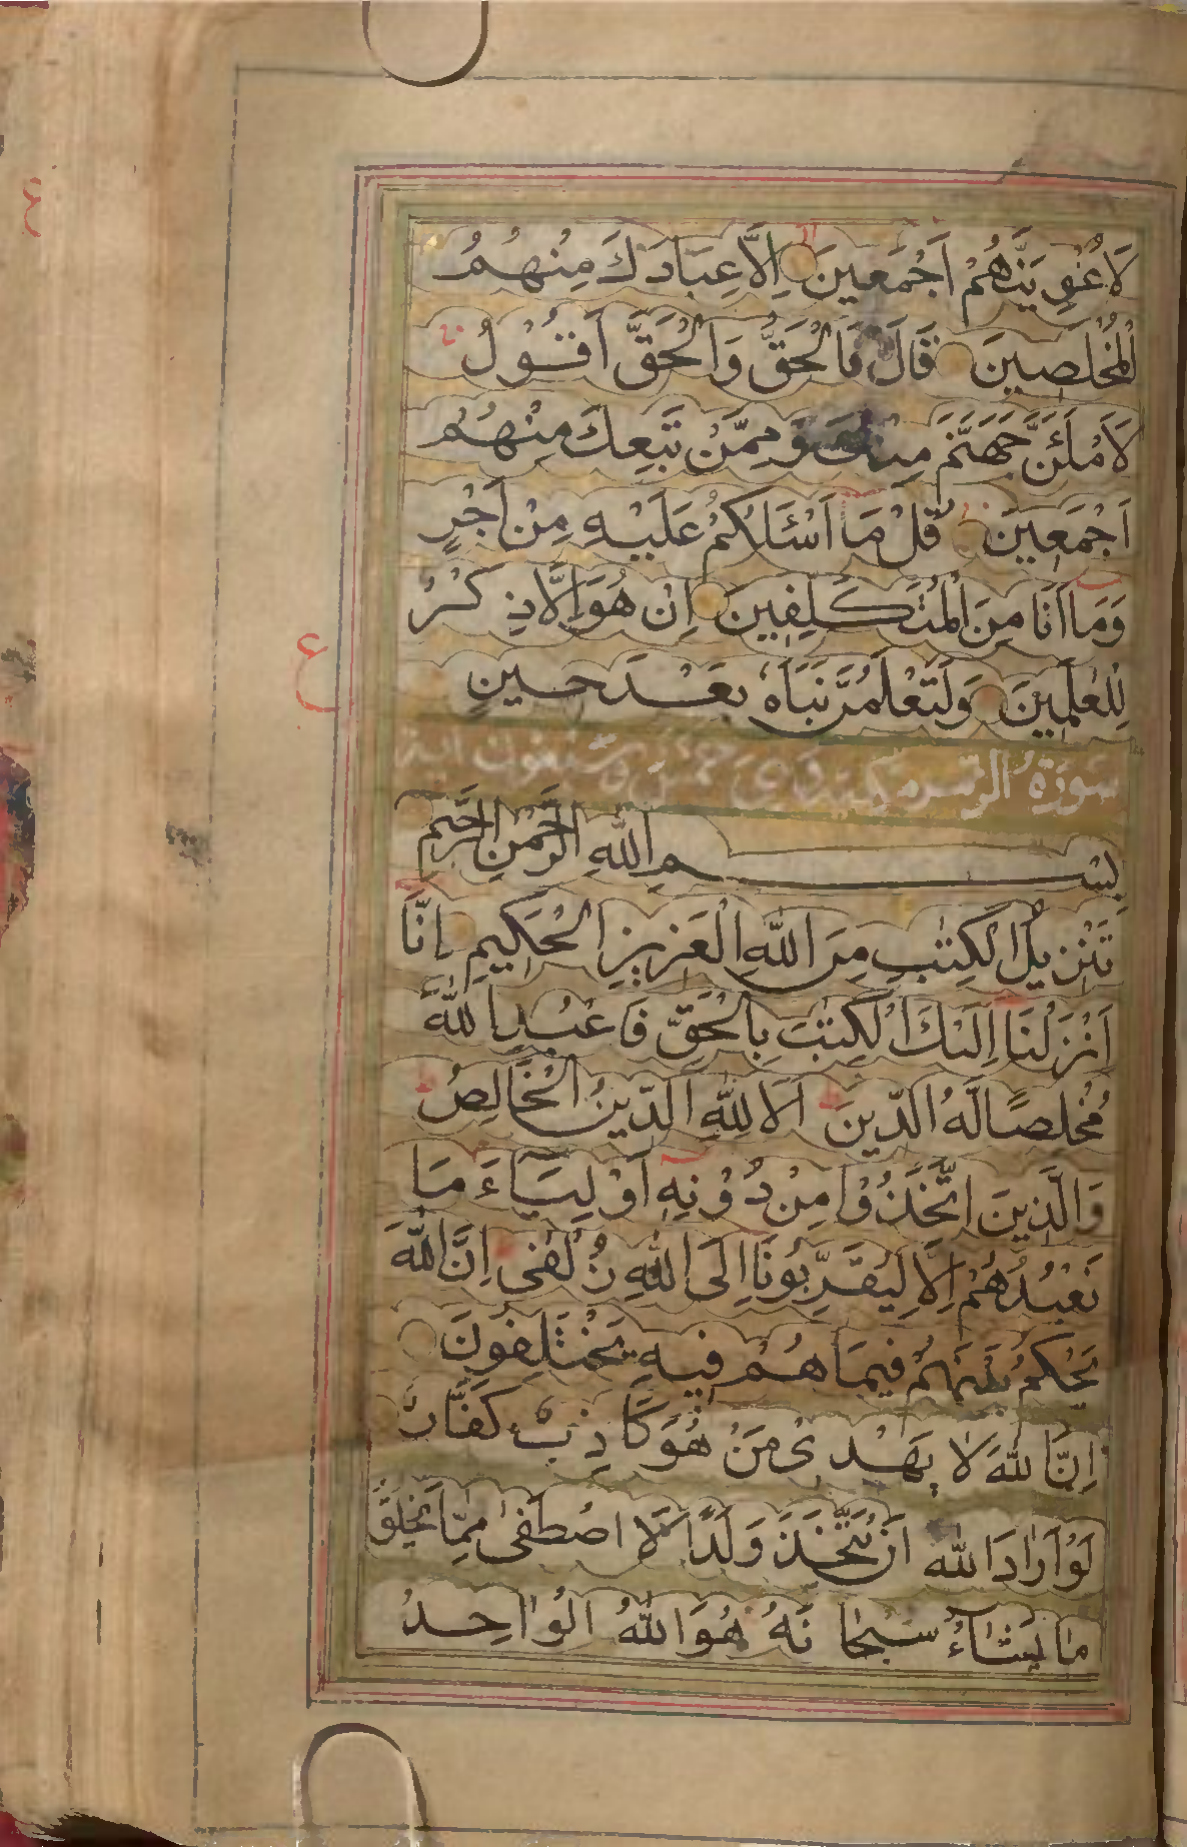 لَاُغْوِيَنَّهُمْ اَجْمَعِينَ اِلَّا عِبَادَكَ مِنْهُمُ
الْمُخْلَصِينَ قَالَ فَالْحَقُّ وَالْحَقَّ اَقُوْلُ
لَاَمْلَئَنَّ جَهَنَّمَ مِنْكَ وَمِمَّنْ تَبِعَكَ مِنْهُمْ
اَجْمَعِينَ قُلْ مَا اَسْئَلُكُمْ عَلَيْهِ مِنْ اَجْرٍ
وَمَا اَنَا مِنَ الْمُتَكَلِّفِينَ اِنْ هُوَ اِلَّا ذِكْرٌ
لِلْعٰلَمِينَ وَلَتَعْلَمُنَّ نَبَاَهُ بَعْدَ حِينٍ
سورة الزمر مكية وهي خمس وسبعون اية
بِسْمِ اللّٰهِ الرَّحْمٰنِ الرَّحِيمِ
تَنْزِيلُ الْكِتٰبِ مِنَ اللّٰهِ الْعَزِيزِ الْحَكِيمِ اِنَّا
اَنْزَلْنَا اِلَيْكَ الْكِتٰبَ بِالْحَقِّ فَاعْبُدِ اللّٰهَ
مُخْلِصًا لَهُ الدِّينَ اَلَا لِلّٰهِ الدِّينُ الْخَالِصُ
وَالَّذِينَ اتَّخَذُوْا مِنْ دُوْنِهِ اَوْلِيَاءَ مَا
نَعْبُدُهُمْ اِلَّا لِيُقَرِّبُونَا اِلَى اللّٰهِ زُلْفٰى اِنَّ اللّٰهَ
يَحْكُمُ بَيْنَهُمْ فِيمَا هُمْ فِيهِ يَخْتَلِفُونَ
اِنَّ اللّٰهَ لَا يَهْدِى مَنْ هُوَ كَاذِبٌ كَفَّارٌ
لَوْ اَرَادَ اللّٰه اَنْ يَتَّخِذَ وَلَدًا لَا اصْطَفٰى مِمَّا يَخْلُقُ
مَا يَشَاءُ سُبْحَانَهُ هُوَ اللّٰهُ الْوَاحِدُ
ع
ع